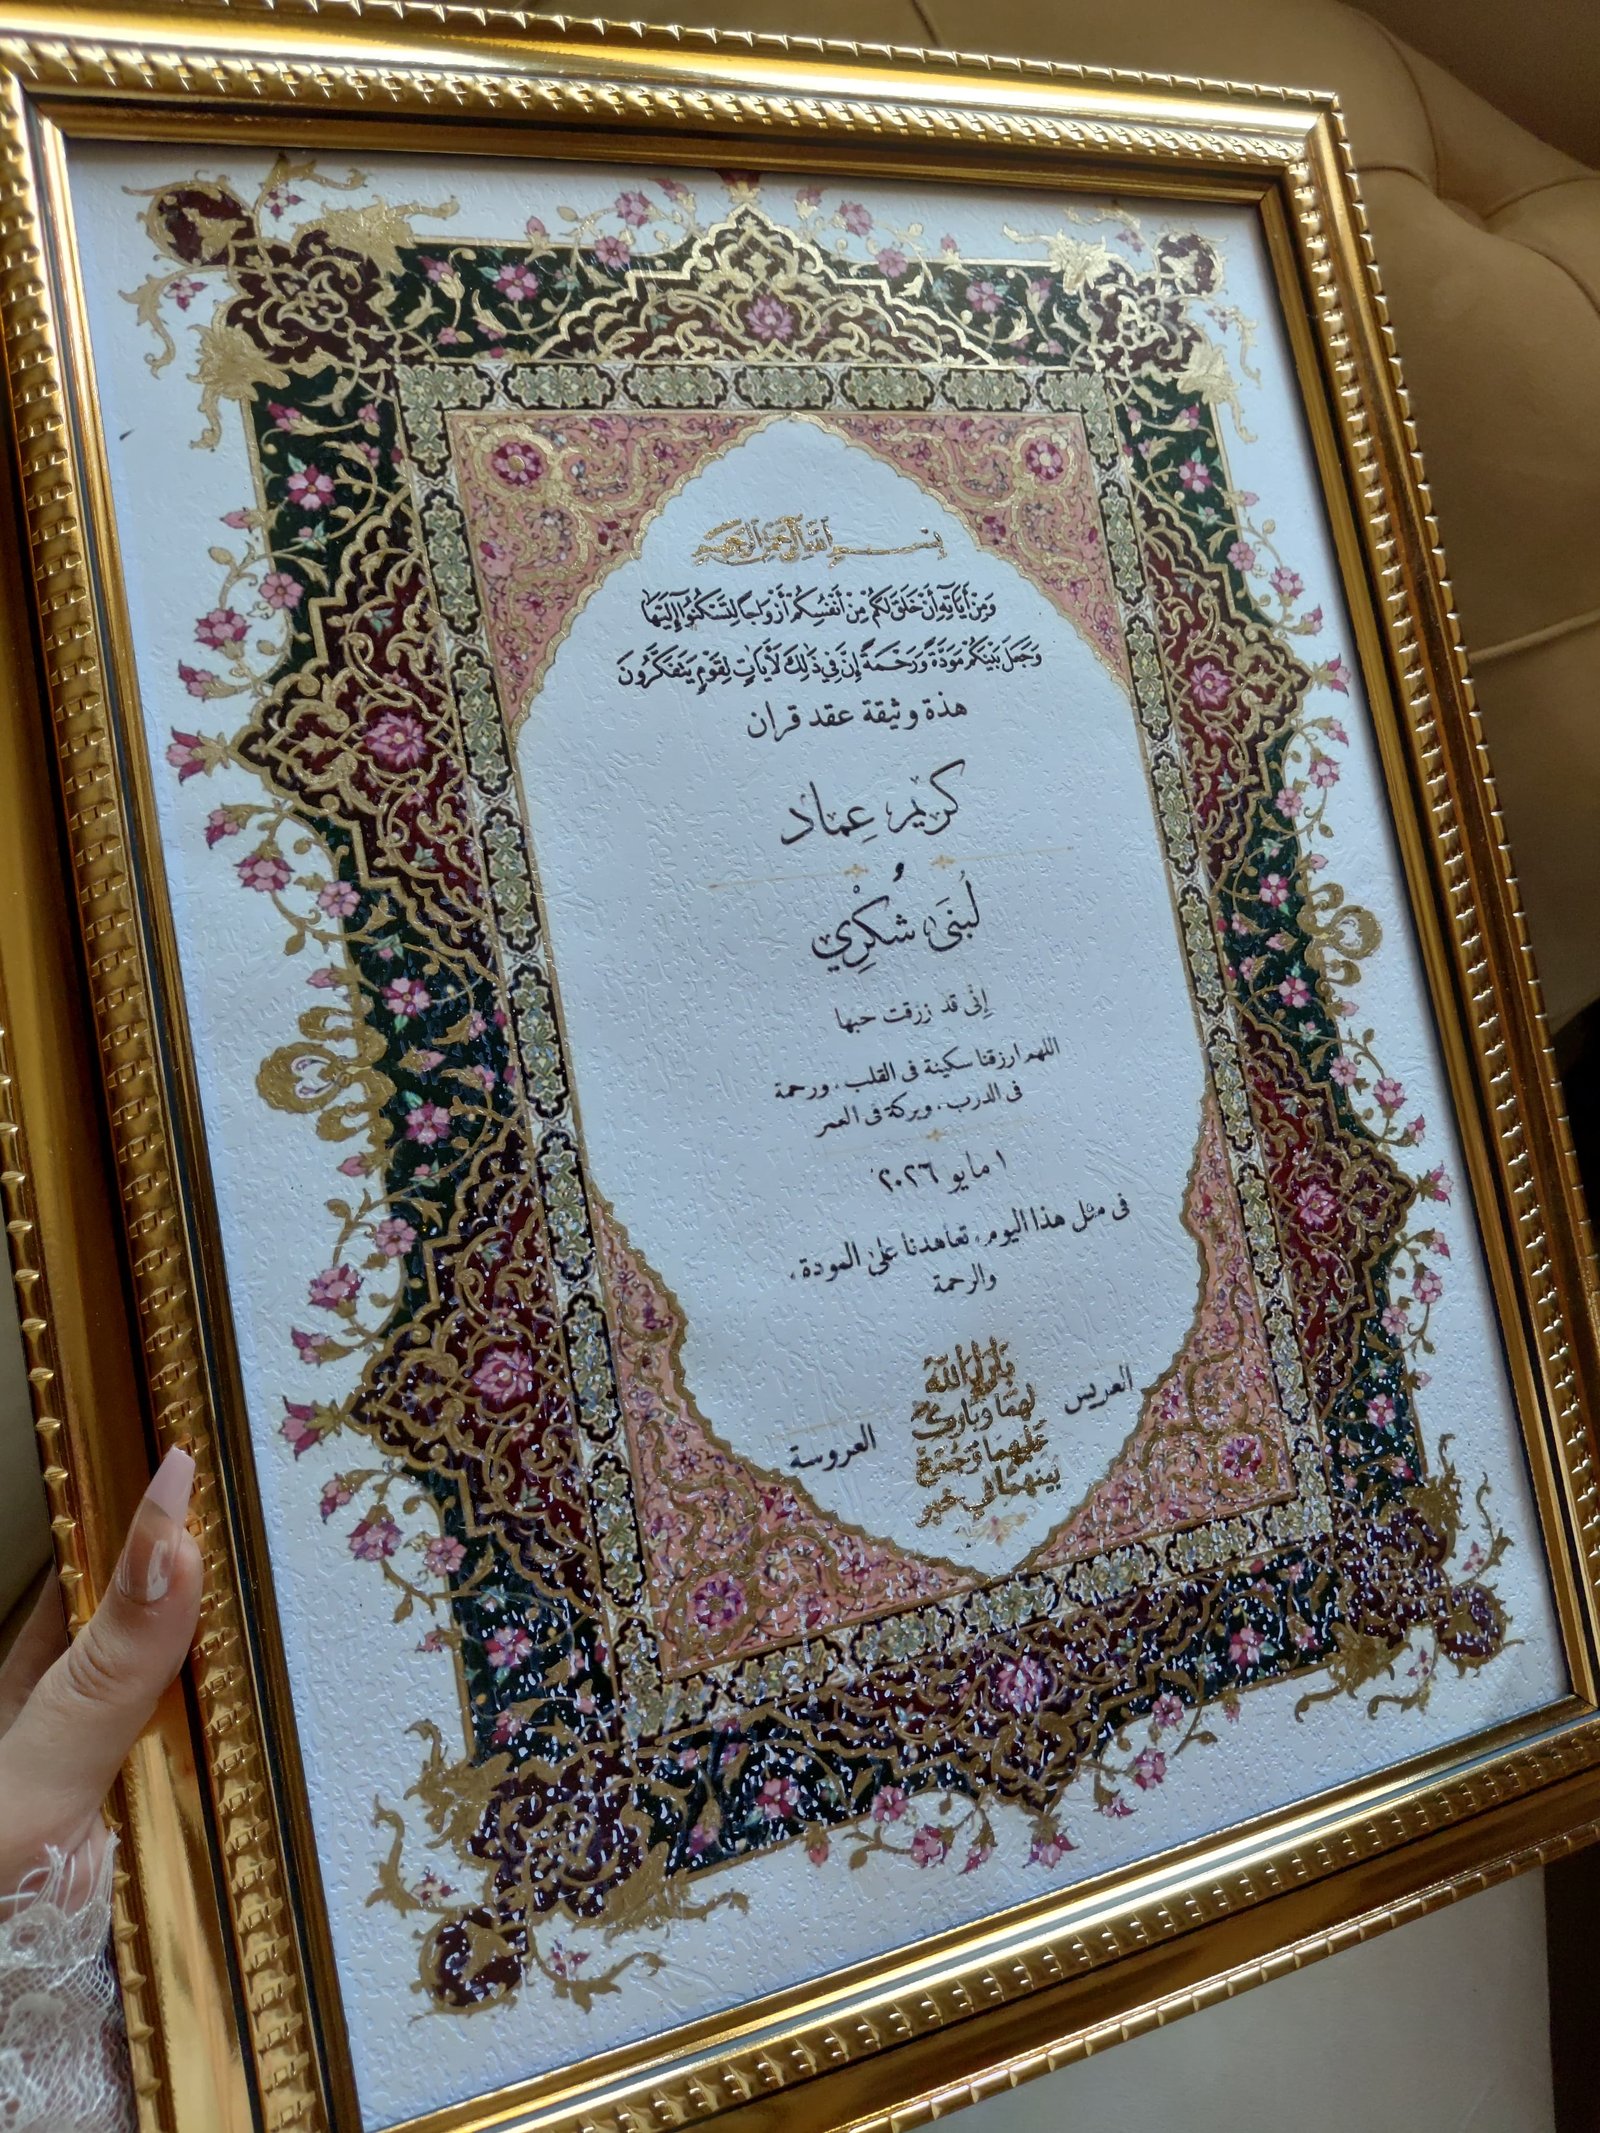 بسم الله الرحمن الرحيم
وَمِنْ آيَاتِهِ أَنْ خَلَقَ لَكُمْ مِنْ أَنْفُسِكُمْ أَزْوَاجًا لِتَسْكُنُوا إِلَيْهَا
وَجَعَلَ بَيْنَكُمْ مَوَدَّةً وَرَحْمَةً إِنَّ فِي ذَلِكَ لَآيَاتٍ لِقَوْمٍ يَتَفَكَّرُونَ
هذة وثيقة عقد قران
كريم عِماد
و
لُبنَى شُكْرِي
إِنِّى قد رزقت حبها
اللهم ارزقنا سكينة فى القلب، ورحمة
فى الدرب، وبركة فى العمر
١ مايو ٢٠٢٦
فى مثل هذا اليوم، تعاهدنا على المودة،
والرحمة
العريس
بارك الله
لهما وبارك
عليهما وجمع
بينهما في خير
العروسة